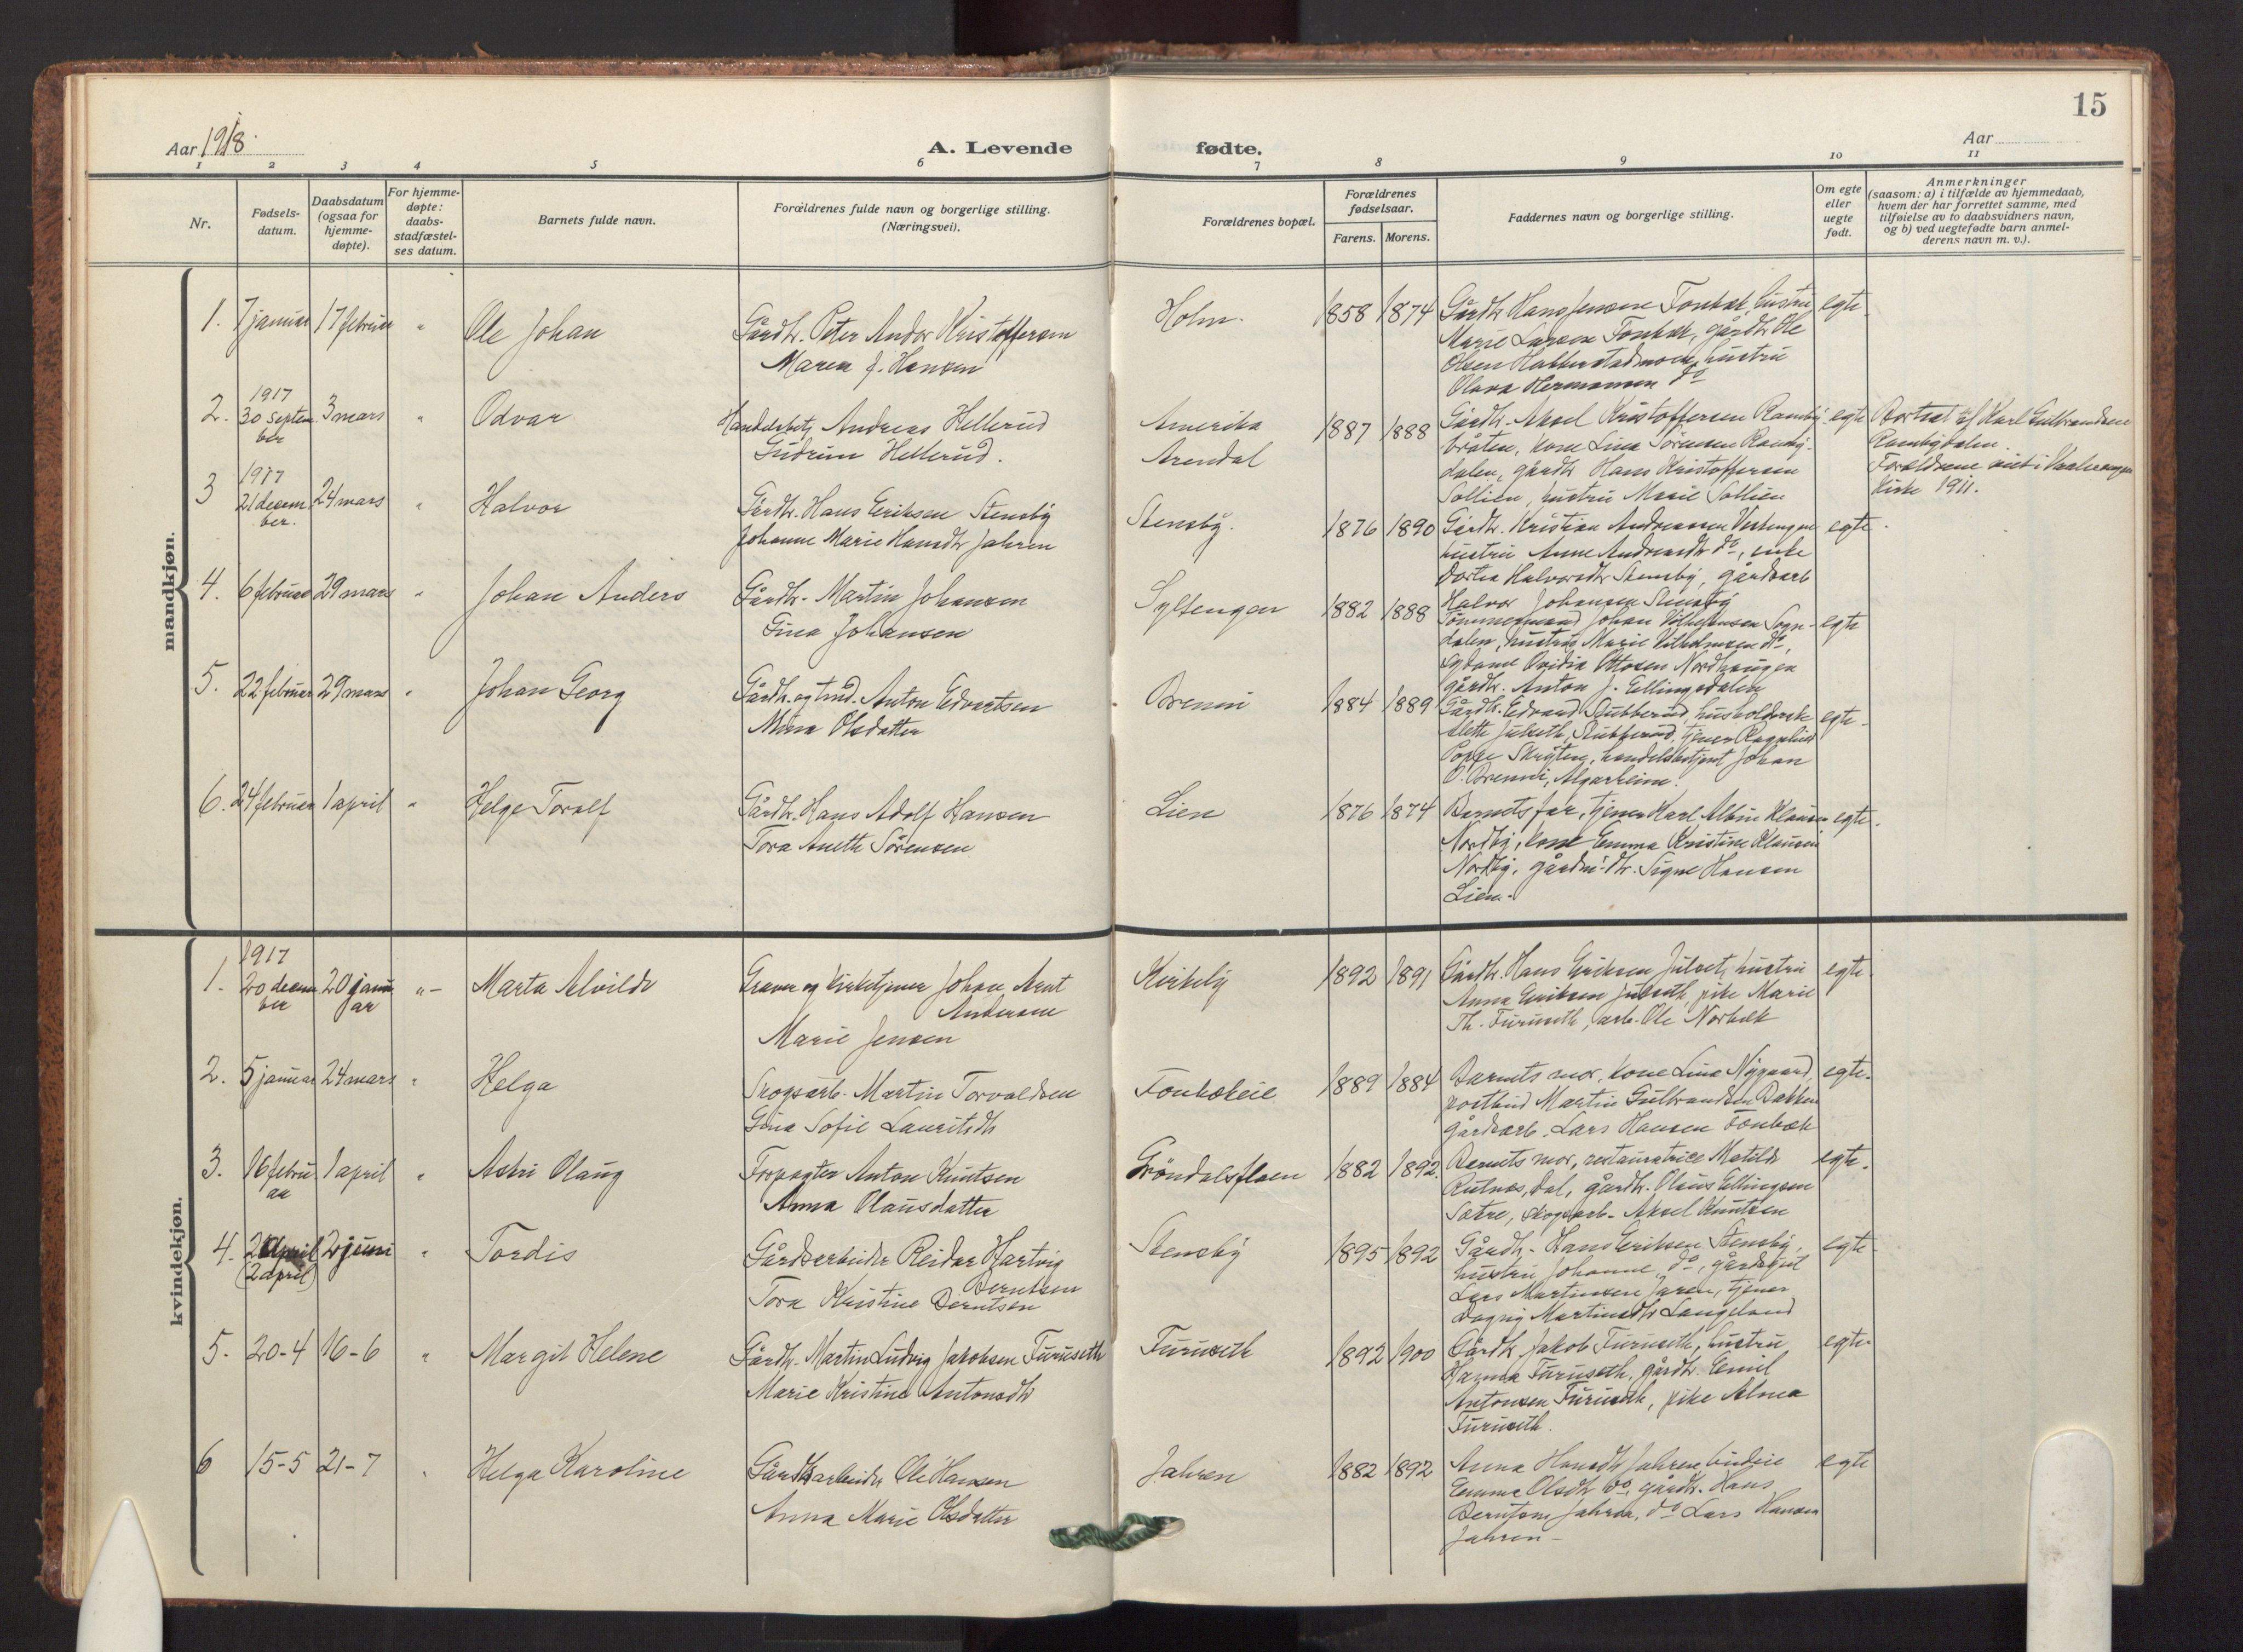 15
Aar 1918.
A. Levende fødte.
Aar
1 2 3 4 5 6 7 8 9 10 11
Nr.
Fødsels-
datum.
Daabsdatum
(ogsaa for
hjemme-
døpte).
For hjemme-
døpte:
daabs-
stadfæstel-
ses datum.
Barnets fulde navn.
Forældrenes fulde navn og borgerlige stilling.
(Næringsvei).
Forældrenes bopæl.
Forældrenes
fødselsaar.
Farens. Morens.
Faddernes navn og borgerlige stilling.
Om egte
eller
uegte
født.
Anmerkninger
(saasom: a) i tilfælde av hjemmedaab,
hvem der har forrettet samme, med
tilføielse av to daabsvidners navn,
og b) ved uegtefødte barn anmel-
derens navn m. v.).
mandkjøn.
1. 7 januar 17 februar " Ole Johan
Gårdbr. Peter Andor Kristoffersen
Maren J. Hansen
Holm. 1858 1874
Gårdbr. Hans Jensen Fonbæk, hustru
Marie Larsen Fonbæk, gårdbr. Ole
Olsen Habberstadmoen, hustru
Olava Hermansen do
egte
2. 1917
30 septem
ber
3 mars " Odvar
Handelsbetj. Andreas Hellerud
Gudrun Hellerud.
Amerika
Arendal
1887 1888
Gårdbr. Aksel Kristoffersen Ramby-
bråten, kone Lina Sørensen Ramby-
dalen, gårdbr. Hans Kristoffersen
Sollien, hustru Marie Sollien
egte
Bortsat til Karl Gulbrandsen
Rambydalen.
Forældrene viet i Vaalerengen
kirke 1911.
3 1917
21 decem
ber.
24 mars " Halvor
Gårdbr. Hans Eriksen Stensby
Johanne Marie Hansdtr Jahren
Stensby. 1876 1890
Gårdbr. Kristian Andreassen
hustru Anne do, enke
Dortea Halvorsdtr Stensby, gårdsarb
Halvor Johansen Stensby
egte.
4. 6 februar 29 mars " Johan Anders
Gårdbr. Martin Johansen
Gina Johansen
Syltengen 1882 1888
Tømmermand Johan Vilhelmsen Sogn-
dalen, hustru Marie Vilhelmsen do,
sydame Ovidia Ottosen Nordhaugen
gårdbr. Anton J. Ellingsdalen
egte
5. 22 februar 29 mars " Johan Georg
Gårdbr. og Anton Edvartsen
Mina Olsdatter
Brenni 1884 1889
Gårdbr. Edvard Stubberud, husholderske
Alette Julseth, Stubberud, tjener Ragnhild
Poppe Skryten, handelsbetjent Johan
O. Brenni, Algarheim.
egte
6. 24 februar 1 april " Helge Toralf
Gårdbr. Hans Adolf Hansen
Tora Anette Sørensen
Lien 1876 1874
Barnets far, tjener Karl Albin Klausen
Nordby, kone Emma Kristine Klausen
Nordby, gårdm.dtr. Signe Hansen
Lien.
egte.
kvindekjøn.
1. 1917
20 decem
ber
20 janu
ar
" Marta Alvilde
Graver og kirketjener Johan Arnt
Andersen
Marie Jensen
Kirkeby 1892 1891
Gårdbr. Hans Eriksen Julseth, hustru
Anna Eriksen Julseth, pike Marie
Th. Furuseth, arb. Ole Norbæk
egte
2. 5 januar 24 mars " Helga
Skogsarb. Martin Torvaldsen
Gina Sofie Lauritsdtr
Fonbækeie 1889 1884
Barnets mor, kone Lina Nygaard,
postbud Martin Gulbrandsen Bakken
gårdsarb. Lars Hansen Fonbæk
egte.
3. 16 febru
ar
1 april " Astri Olaug
Forpagter Anton Knutsen
Anna Olausdatter
Grøndalsflaen 1882 1892.
Barnets mor, restauratrice Matilde
Rutnes, Dal, gårdbr. Olaus Ellingsen
Sætre, skogsarb. Aksel Knutsen
egte.
4. april
(2 april)
2 juni " Tordis
Gårdsarbeider Reidar Hartvig
Berntsen
Tora Kristine Berntsen
Stensby 1895 1892
Gårdbr. Hans Eriksen Stensby,
hustru Johanne do, gårdsgut
Lars Martinsen Jaren, tjener
Dagny Martinsdtr Langeland
egte
5. 20-4 16-6 " Margit Helene
Gårdbr. Martin Ludvig Jakobsen Furuseth
Marie Kristine Antonsdtr
Furuseth 1892 1900
Gårdbr. Jakob Furuseth, hustru
Hanna Furuseth, gårdbr. Emil
Antonsen Furuseth, pike Alma
Furuseth.
egte.
6 15-5 21-7 " Helga Karoline
Gårdsarbeider Ole Hansen
Anna Marie Olsdatter
Jahren 1882 1892
Anna Hansdtr Jahren, budeie
Emma Olsdtr do, gårdbr. Hans
Berntsen Jahren, do Lars Hansen
Jahren
egte